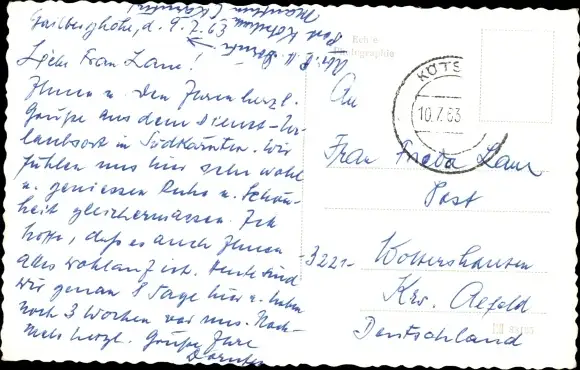 Gailberghöhe, d. 9.7.63
Liebe Frau Laue!
Ihnen u. den Ihren herzl.
Grüße aus dem Dienst-Ur-
laubsort in Südkärnten. Wir
fühlen uns hier sehr wohl
u. geniessen Ruhe u. Schön-
heit gleichermassen. Ich
hoffe, daß es auch Ihnen
alles wohlauf ist. Heute sind
wir genau 8 Tage hier u. haben
noch 3 Wochen vor uns. Noch-
mals herzl. Grüße Ihre
Post Kötschach
Mauthen (Kärnten)
Echte
Photographie
KÖTS
10.7.63
An
Frau Frieda Laue
Post
-3221- Wolfershausen
Krs. Alfeld
Deutschland